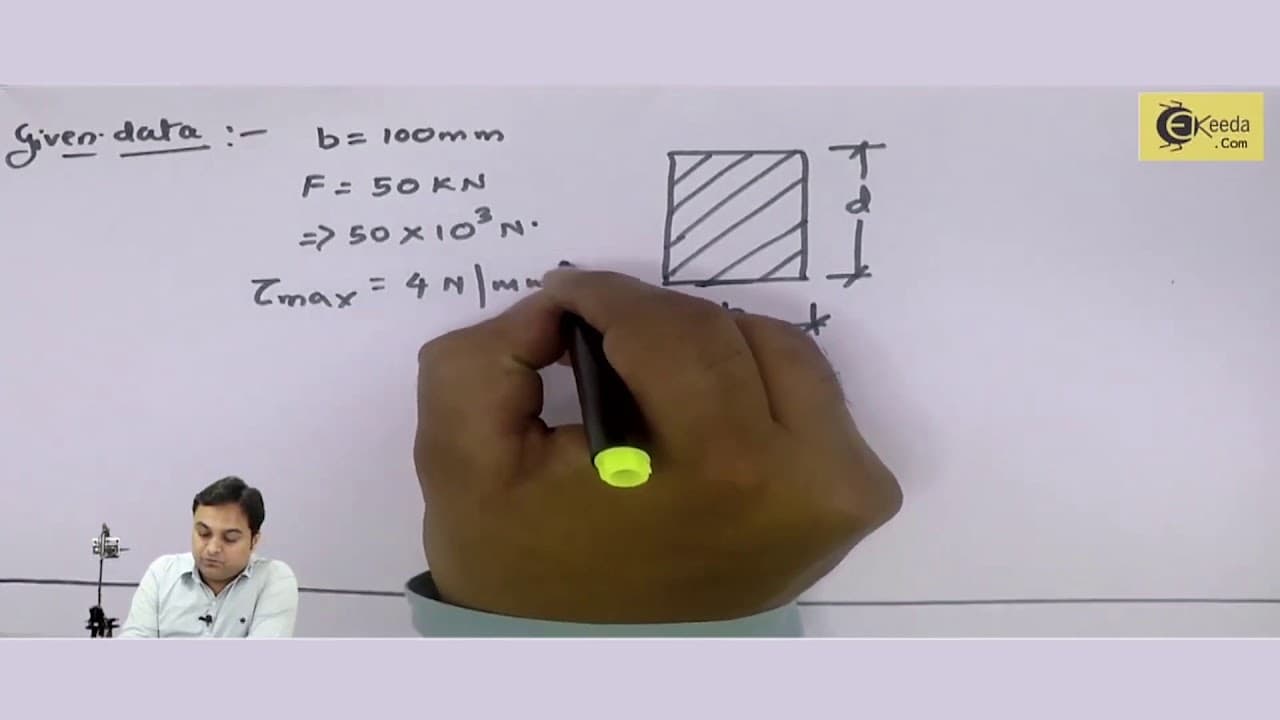 Given data :-
b = 100mm
F = 50 KN
=> 50 × 10³ N.
τmax = 4 N|mm
d
EKeeda
.Com